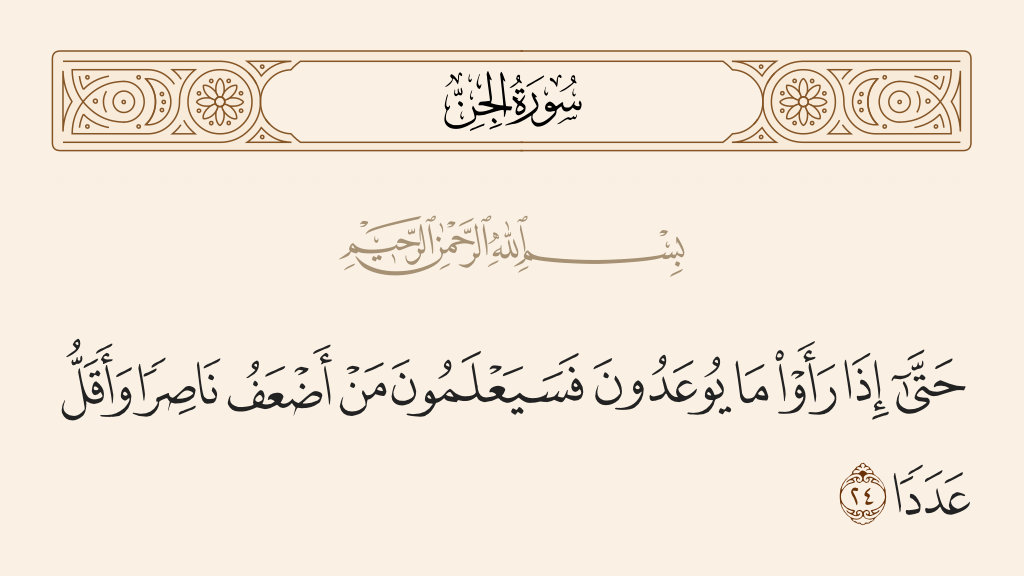 سُورَةُ الجِنِّ
بِسْمِ ٱللَّهِ ٱلرَّحْمَٰنِ ٱلرَّحِيمِ
حَتَّىٰٓ إِذَا رَأَوْا۟ مَا يُوعَدُونَ فَسَيَعْلَمُونَ مَنْ أَضْعَفُ نَاصِرًا وَأَقَلُّ
عَدَدًا ٢٤